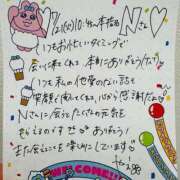 7/21(火)10:45〜本指名
Nさん♡
いつもお忙しいタイミングで
会いに来てくれる、本当にありがとうだよ♡
いつも私の他愛のない話を
笑顔で聞いてくれる、心から感謝だよ
Nさんに会えてたくさんの元気を
もらえるのですᐢ ありがとう!
また会えることを楽しみにしています
WELCOME!!